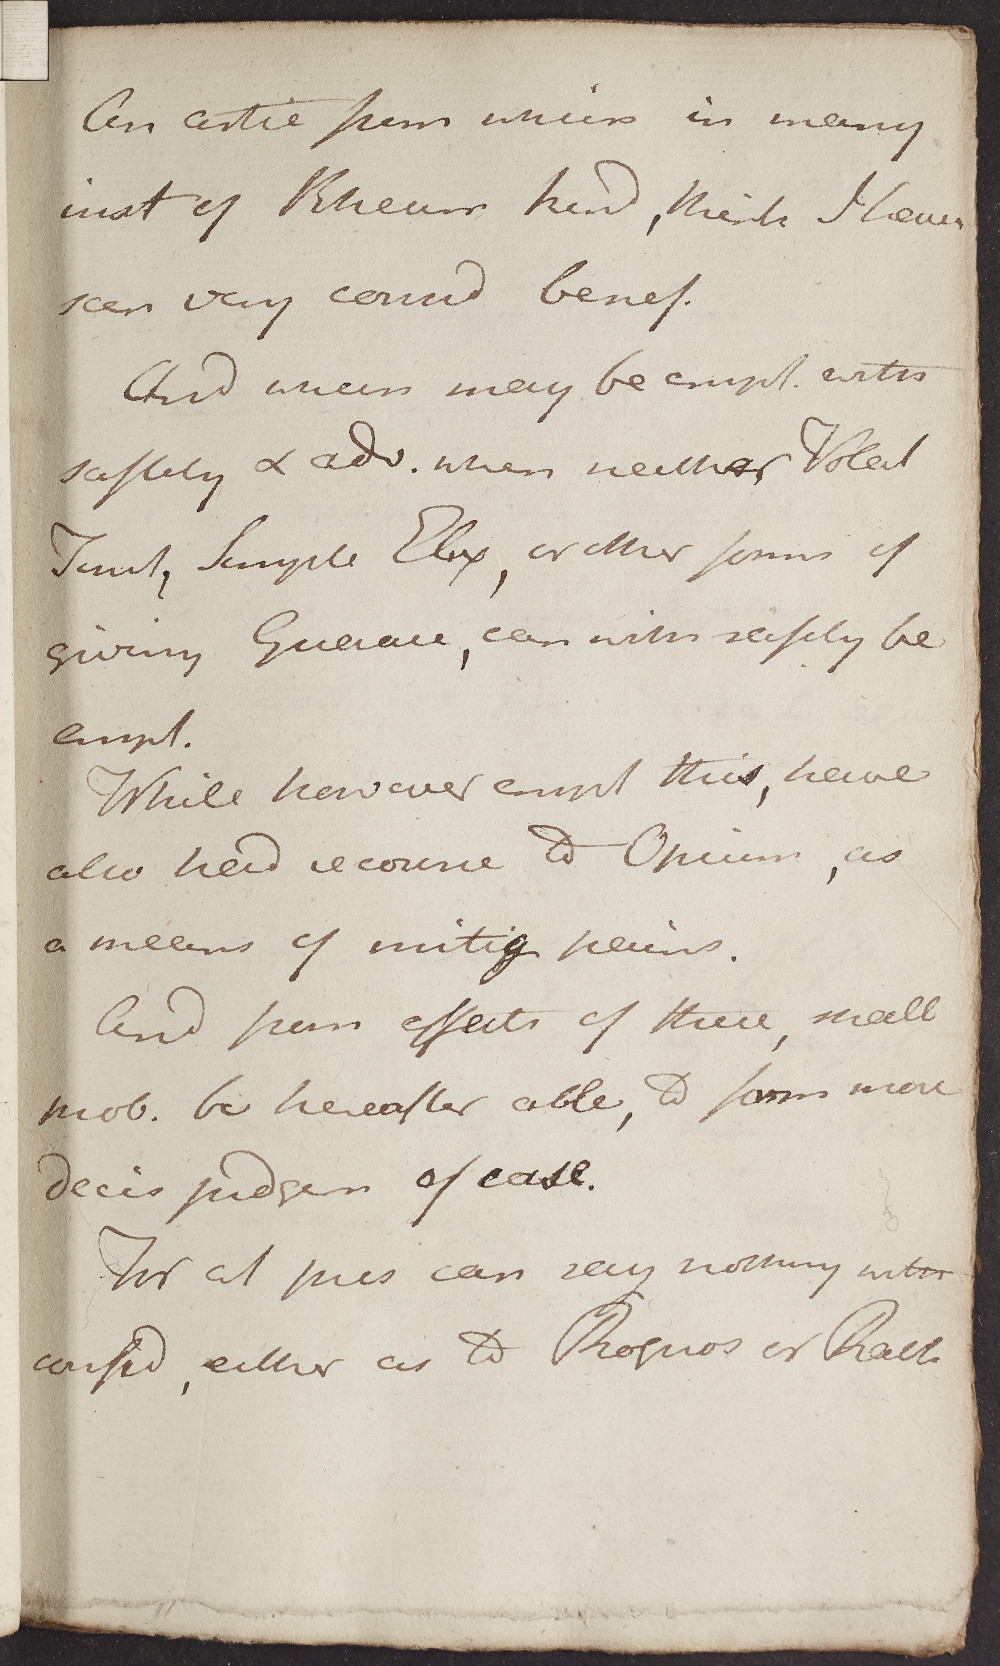 An artic from which in many
inst of Rheum hend, think I have
seen very consid benef.
And which may be empl. with
safety & adv. when neither Volat
Tinct, Simple Elix, or other forms of
giving Guaiac, can with safety be
empl.
While however empl this, have
also had recourse to Opium, as
a means of mitig pains.
And from effects of these, shall
prob. be hereafter able, to form more
decis judgem of case.
For at pres can say nothing with
confid, either as to Prognos or Path